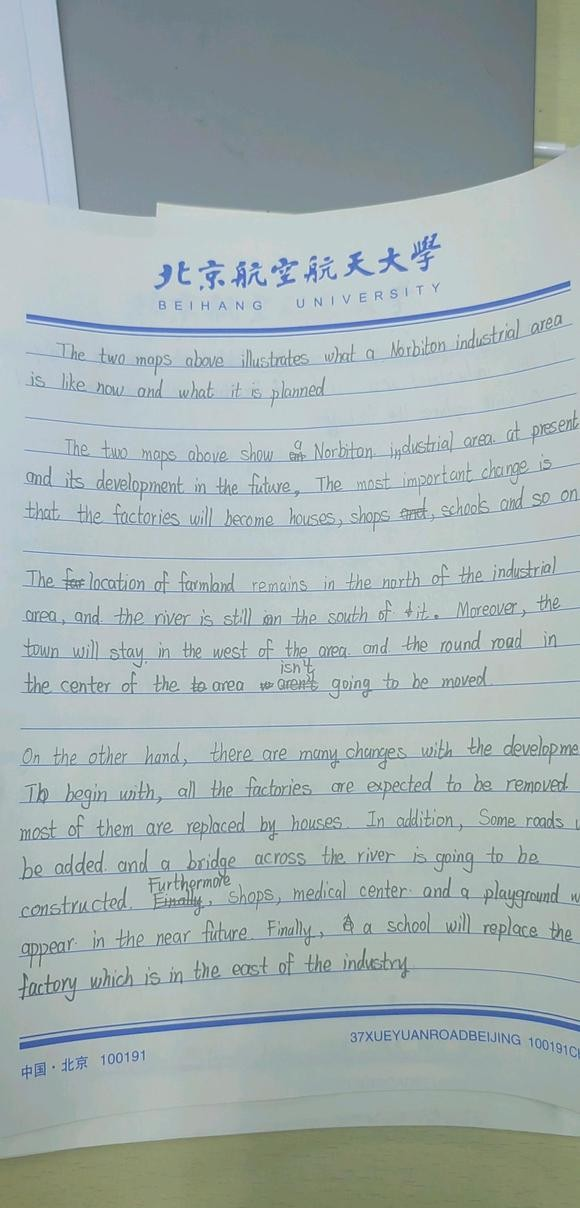 北京航空航天大學
BEIHANG UNIVERSITY
The two maps above illustrates what a Norbiton industrial area
is like now and what it is planned
The two maps above show a Norbiton industrial area at present
and its development in the future, The most important change is
that the factories will become houses, shops and, schools and so on
The far location of farmland remains in the north of the industrial
area, and the river is still on the south of it. Moreover, the
town will stay in the west of the area and the round road in
isn't
the center of the to area aren't going to be moved.
On the other hand, there are many changes with the developme
To begin with, all the factories are expected to be removed.
most of them are replaced by houses. In addition, Some roads
be added and a bridge across the river is going to be
Furthermore
constructed. Finally, shops, medical center and a playground w
appear in the near future. Finally, a school will replace the
factory which is in the east of the industry
37XUEYUANROADBEIJING 100191C
中国·北京 100191